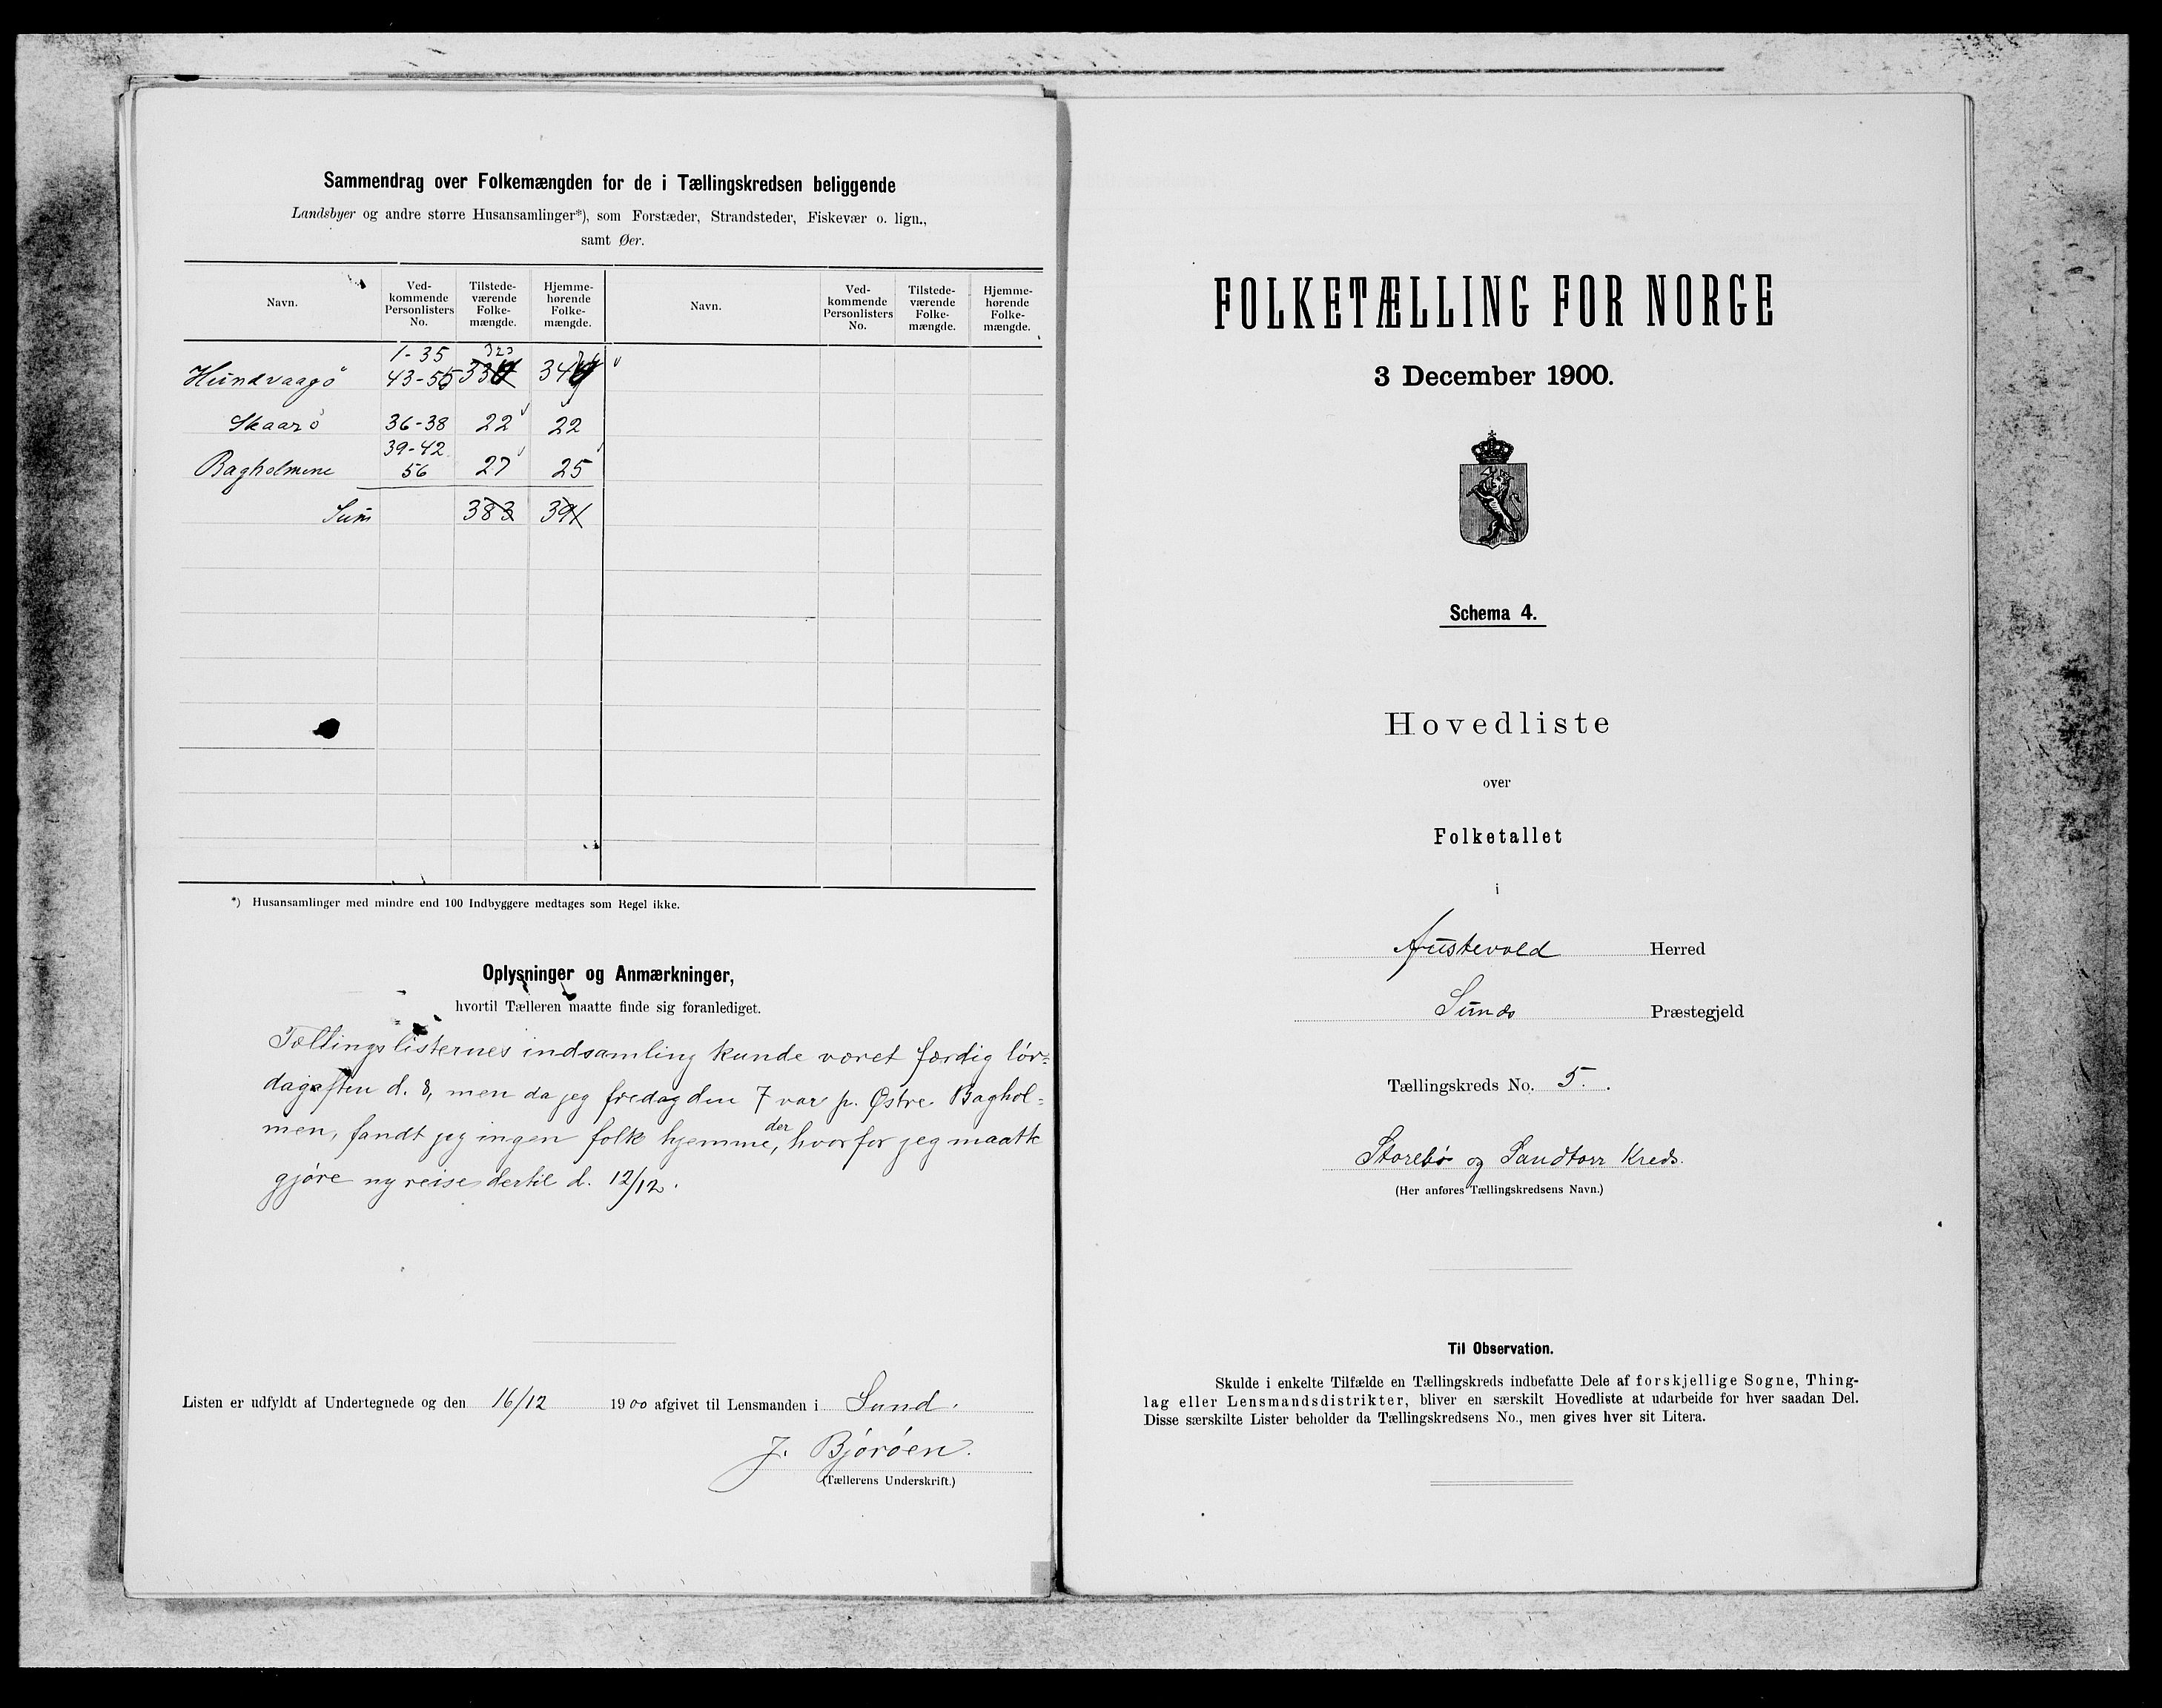 Sammendrag over Folkemængden for de i Tællingskredsen beliggende
Landsbyer og andre større Husansamlinger*), som Forstæder, Strandsteder, Fiskevær o. lign.,
samt Øer.
Navn. Ved-kommende Personlisters No. Tilstede-værende Folke-mængde. Hjemme-hørende Folke-mængde. Navn. Ved-kommende Personlisters No. Tilstede-værende Folke-mængde. Hjemme-hørende Folke-mængde.
1-35 323
Hundvaagö 43-55
Skaarö 36-38 22 22
39-42
Bagholmene 56 27 25
Sum 383 391
*) Husansamlinger med mindre end 100 Indbyggere medtages som Regel ikke.
Oplysninger og Anmærkninger,
hvortil Tælleren maatte finde sig foranlediget.
Tællingslisternes indsamling kunde været færdig lör=
dagaften d. 8, men da jeg fredag den 7 var p. Østre Baghol=
men, fandt jeg ingen folk hjemme der, hvorfor jeg maatte
gjöre ny reise dertil d. 12/12.
Listen er udfyldt af Undertegnede og den 16/12 1900 afgivet til Lensmanden i Sund.
J. Björöen.
(Tællerens Underskrift.)
FOLKETÆLLING FOR NORGE
3 December 1900.
Schema 4.
Hovedliste
over
Folketallet
i
Austevold Herred
Sunds Præstegjeld
Tællingskreds No. 5.
Storebö og Sandtorr Kreds.
(Her anføres Tællingskredsens Navn.)
Til Observation.
Skulde i enkelte Tilfælde en Tællingskreds indbefatte Dele af forskjellige Sogne, Thing-
lag eller Lensmandsdistrikter, bliver en særskilt Hovedliste at udarbeide for hver saadan Del.
Disse særskilte Lister beholder da Tællingskredsens No., men gives hver sit Litera.